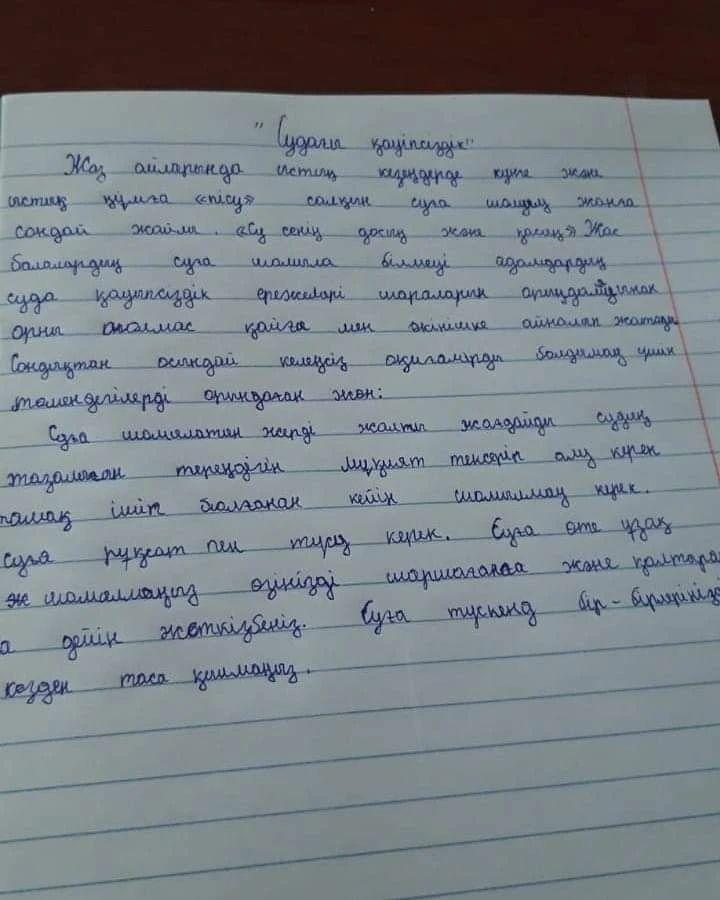 "Судағы қауіпсіздік"
Жаз айларында істық кезеңдерде күнге және
ыстық құмға «пісу» салқын суға шомылу жанға
сондай жайлы. «Су сенің досың және қасың» Жас
балалардың суға шомыла білмеуі адамдардың
суда қауыпсіздік ережелері шараларын орындамауынан
орны толмас қайғы мен өкінішке айналып жатады
Сондықтан осындай келеңсіз оқиғаларды болдымау үшін
төмендегілерді орындаған жөн:
Суға шомылатын жерді жалпы жағдайды судың
тазалығын тереңдігін мұқият тексеріп алу керек
тамақ ішіп болғанан кейін шомылмау керек.
суға рұқсат пен түсу керек. Суға өте ұзақ
шомылмаңыз өзіңізді шаршағанға және қалтыраға
дейін жеткізбеңіз. Суға түскенде бір-бірлеріңізді
көзден таса қылмаңыз.